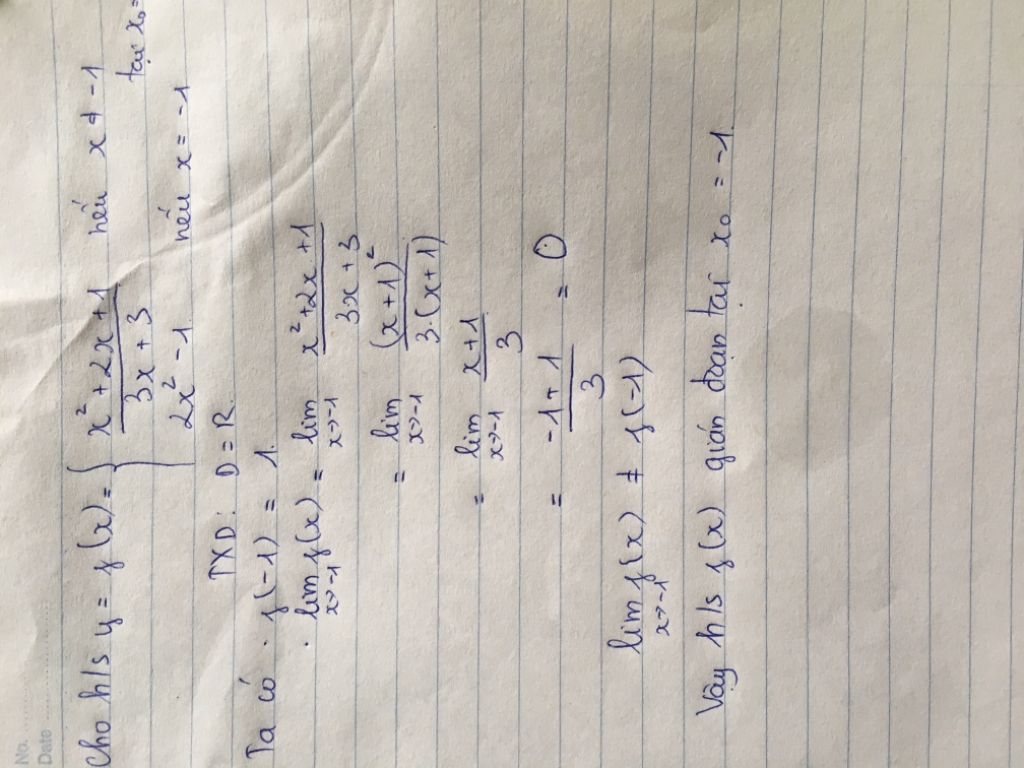 No.
Date
Cho h/s y = f(x) = { x² + 2x + 1 / 3x + 3 nếu x ≠ -1
tại x₀ =
2x² - 1 nếu x = -1
TXD: D = R.
Ta có . f(-1) = 1.
. lim x→-1 f(x) = lim x→-1 x² + 2x + 1 / 3x + 3
= lim x→-1 (x+1)² / 3.(x+1)
= lim x→-1 x+1 / 3
= -1+1 / 3 = 0
lim x→-1 f(x) ≠ f(-1)
Vậy h/s f(x) gián đoạn tại x₀ = -1.